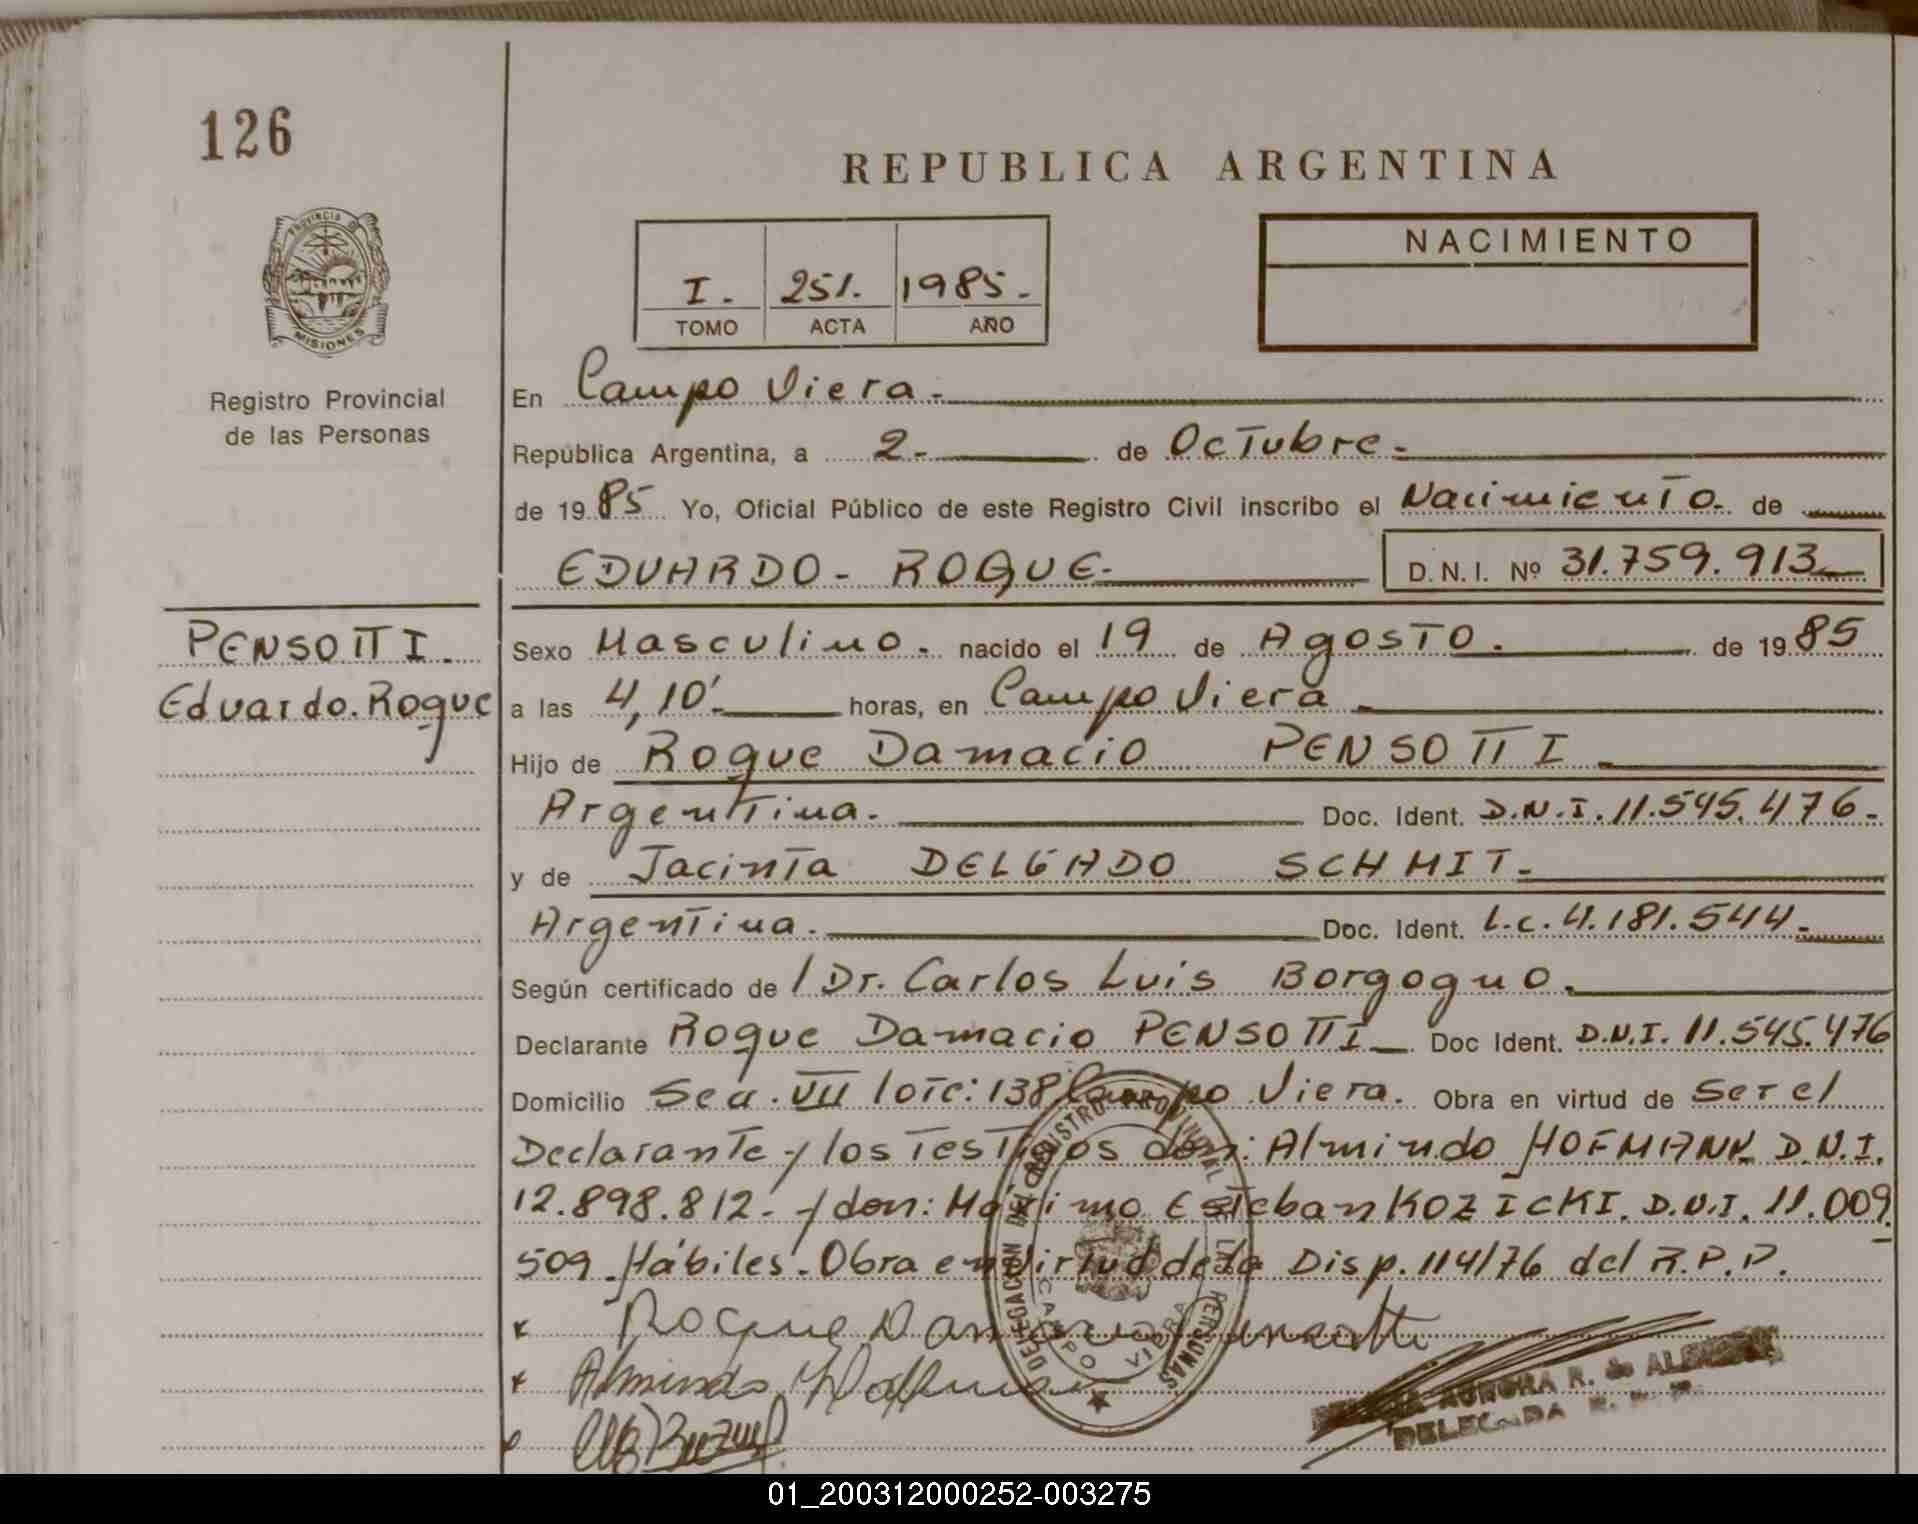 126
REPUBLICA ARGENTINA
PROVINCIA DE
MISIONES
I. 251. 1985.
TOMO ACTA AÑO
NACIMIENTO
Registro Provincial
de las Personas
En Campo Viera.
República Argentina, a 2. de Octubre.
de 1985 Yo, Oficial Público de este Registro Civil inscribo el Nacimiento. de
EDUARDO - ROQUE. D.N.I. Nº 31.759.913
PENSOTTI.
Eduardo. Roque
Sexo Masculino. nacido el 19 de Agosto. de 1985
a las 4,10'. horas, en Campo Viera.
Hijo de Roque Damacio PENSOTTI.
Argentina. Doc. Ident. D.N.I. 11.545.476.
y de Jacinta DELGADO SCHMIT.
Argentina. Doc. Ident. L.C. 4.181.544.
Según certificado de / Dr. Carlos Luis Borgogno.
Declarante Roque Damacio PENSOTTI Doc Ident. D.N.I. 11.545.476
Domicilio Secc. VII lote: 138 Campo Viera. Obra en virtud de Ser el
Declarante y los Testigos don: Almindo HOFMANN D.N.I.
12.898.812. y don: Máximo Esteban KOZICKI. D.N.I. 11.009.
509. Hábiles. Obra en virtud de la Disp. 114/76 del R.P.P.
Roque Damacio
Almindo
DELEGACION DEL REGISTRO PROVINCIAL DE LAS PERSONAS
CAMPO VIERA
AURORA R. de
DELEGADA R. P. P.
01_200312000252-003275